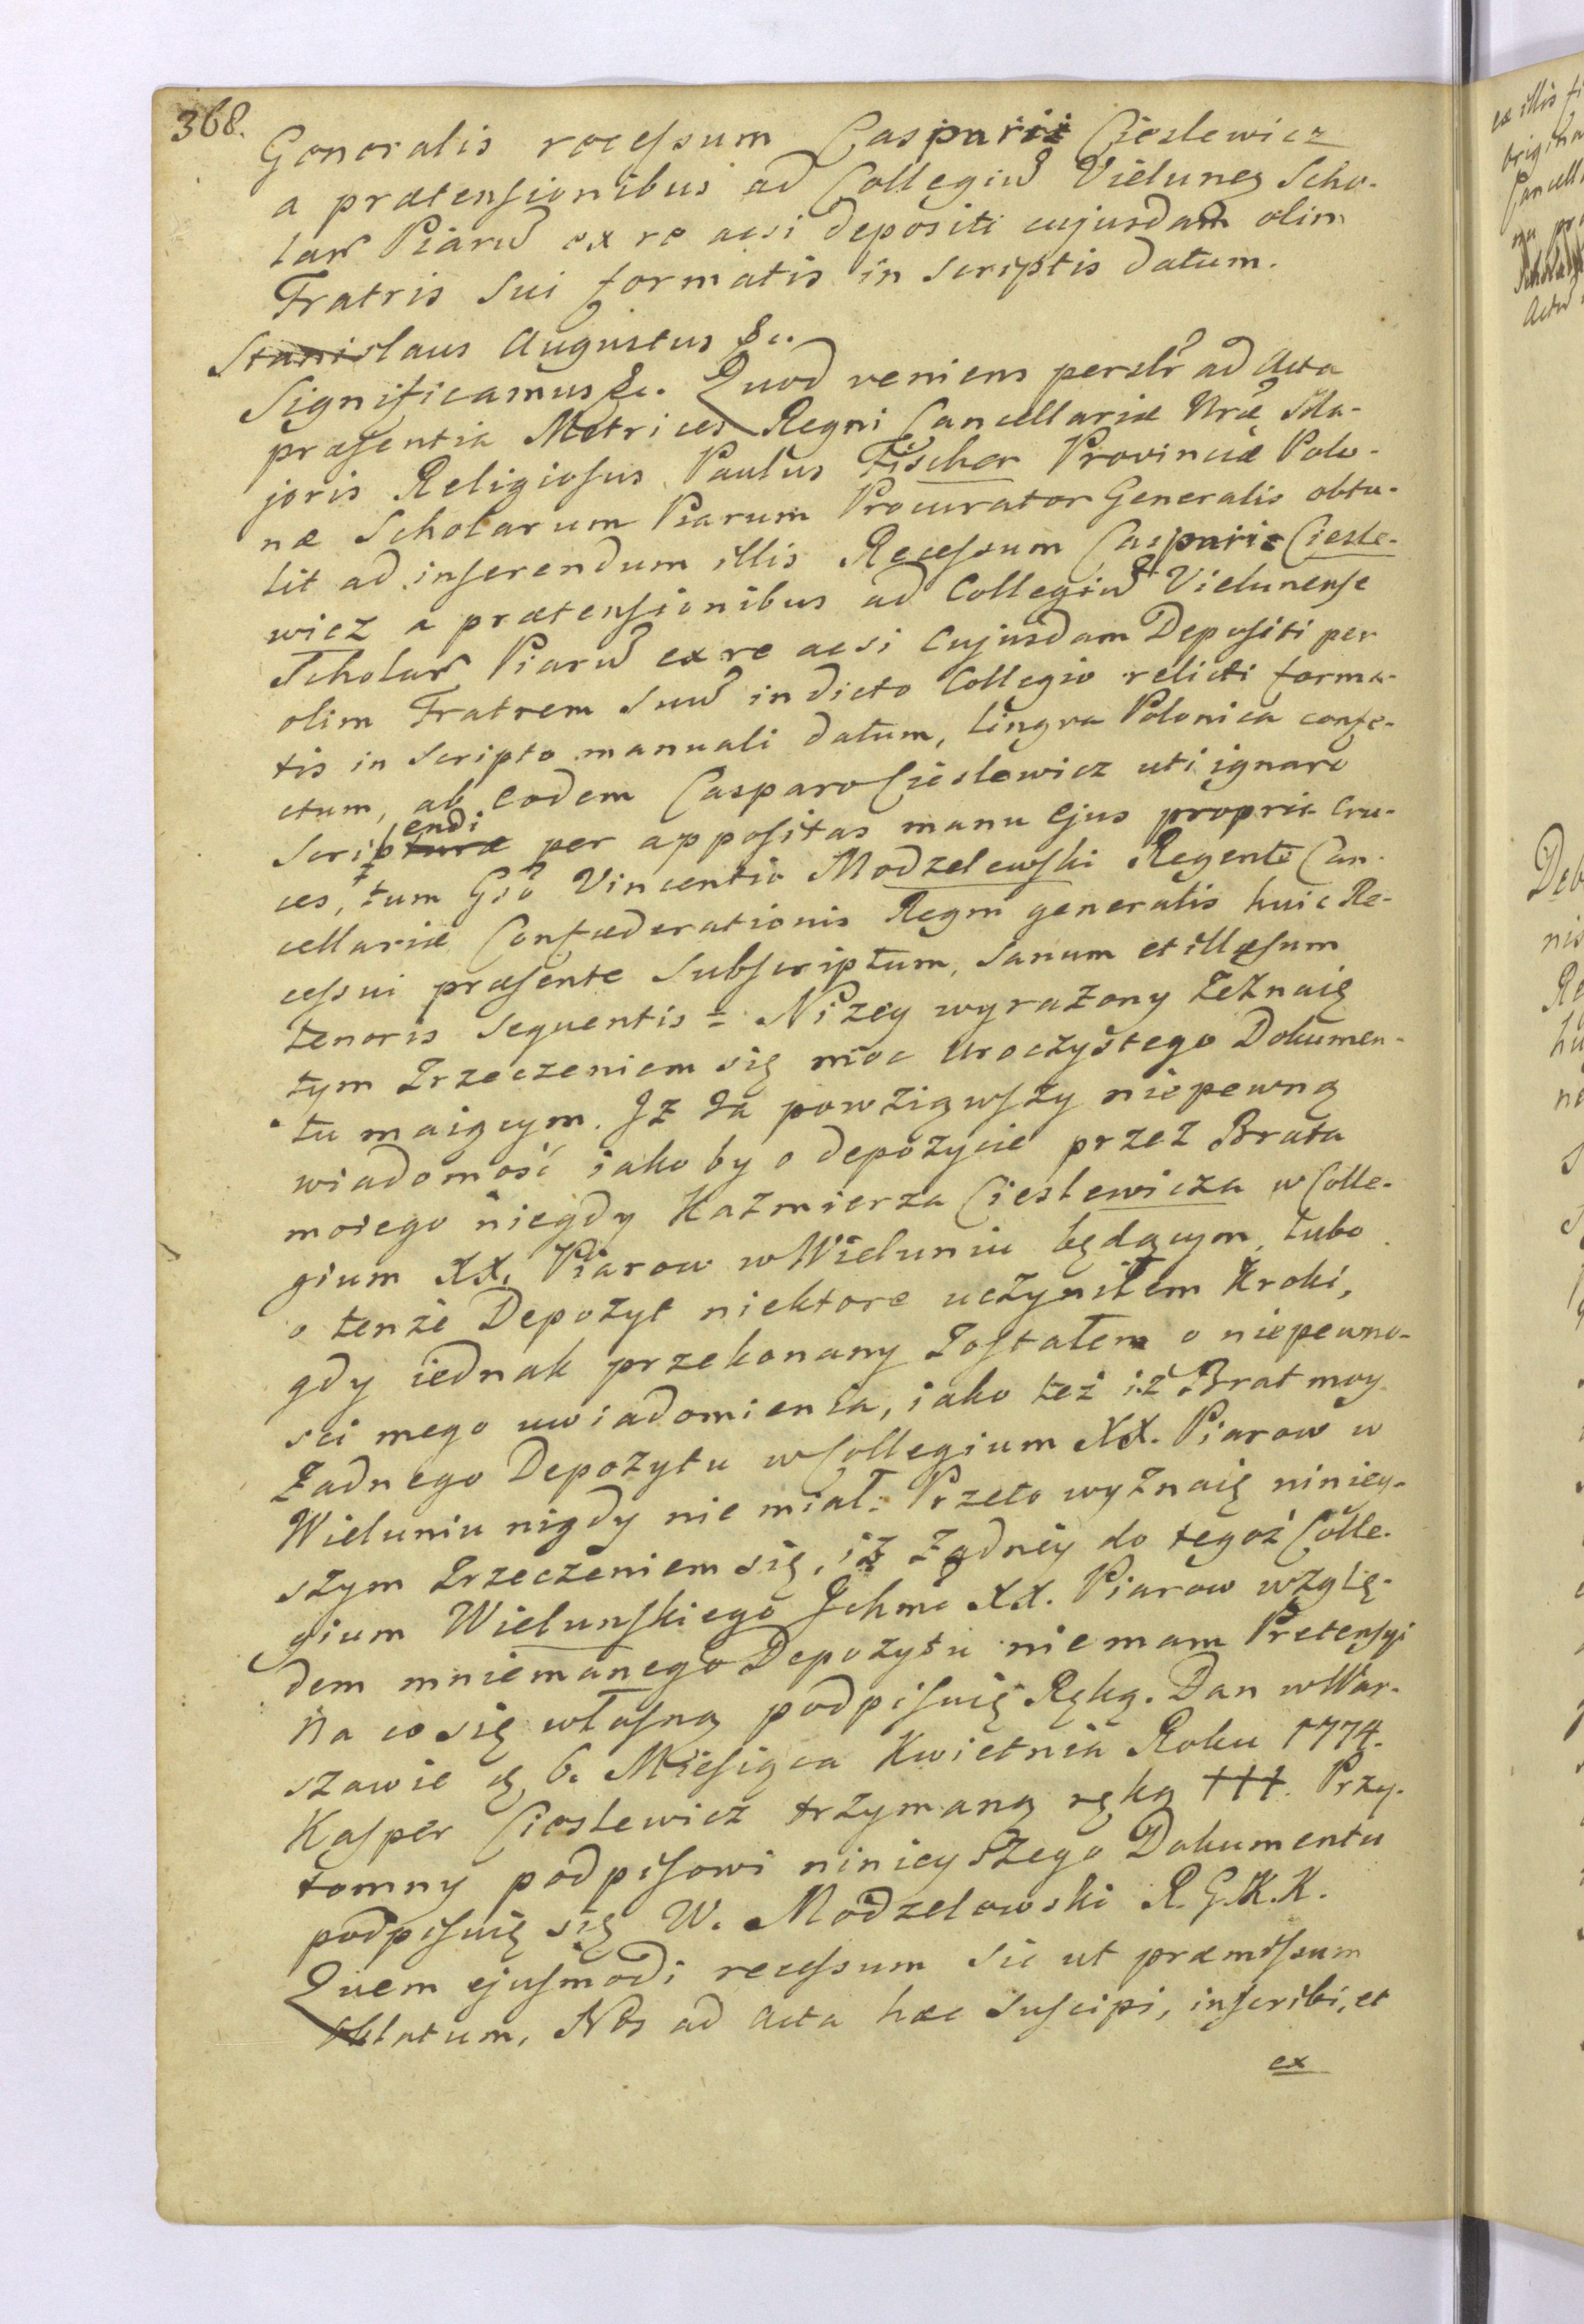 368.
Generalis recessum Casparis Cieslewicz
a prætensionibus ad Collegiū Vielunen̄ Scho-
lar̄ Piarū ex re acsi depositi cujusdam olim
Fratris Sui formatis in Scriptis datum.
Stanislaus Augustus &c.
Significamus &c. Quod veniens persl̄r ad Acta
præsentia Metrices Regni Cancellariæ Nr̄æ Ma-
joris Religiosus Paulus Fischer Provinciæ Polo-
næ Scholarum Piarum Procurator Generalis obtu-
lit ad inserendum illis Recessum Casparis Ciesle-
wicz a prætensionibus ad Collegiū Vielunense
Scholar̄ Piarū ex re acsi Cujusdam Depositi per
olim Fratrem Suū in dicto Collegio relicti forma-
tis in Scripto manuali datum, Lingva Polonica confe-
ctum, ab eodem Casparo Cieslewicz uti ignaro
Scribendi per appositas manu Ejus propria Cru-
ces, tum Gsō Vincentio Modzelewski Regente Can-
cellariæ Confæderationis Regni generalis huic Re-
cessui præsente Subscriptum, Sanum et illæsum
tenoris Sequentis = Niżey wyrażony zeznaię
tym Zrzeczeniem się moc Uroczystego Dokumen-
tu maiącym. Jż Ja powziąwszy niepewną
wiadomość iakoby o depozycie przez Brata
moiego niegdy Kaźmierza Cieslewicza w Colle-
gium XX. Piarow w Wieluniu będącym, lubo
o tenże Depozyt niektore uczyniłem Kroki,
gdy iednak przekonany zostałem o niepewno-
sci mego uwiadomienia, iako też iż Brat moy
Żadnego Depozytu w Collegium XX. Piarow w
Wieluniu nigdy nie miał: Przeto wyznaię niniey-
szym Zrzeczeniem się, iż Żadney do tegoż Colle-
gium Wielunskiego Jchmć XX. Piarow wzglę-
dem mniemanego Depozytu nie mam Pretensyi
Na co się własną podpisuię Ręką. Dan w War-
szawie d. 6. Miesiąca Kwietnia Roku 1774.
Kasper Cieslewicz trzymaną ręką +++. Przy-
tomny podpisowi ninieyszego Dokumentu
podpisuię się W. Modzelewski R. G. K. K.
Quem ejusmodi recessum sic ut præmissum
oblatum, Nos ad Acta hæc Suscipi, inscribi, et
ex